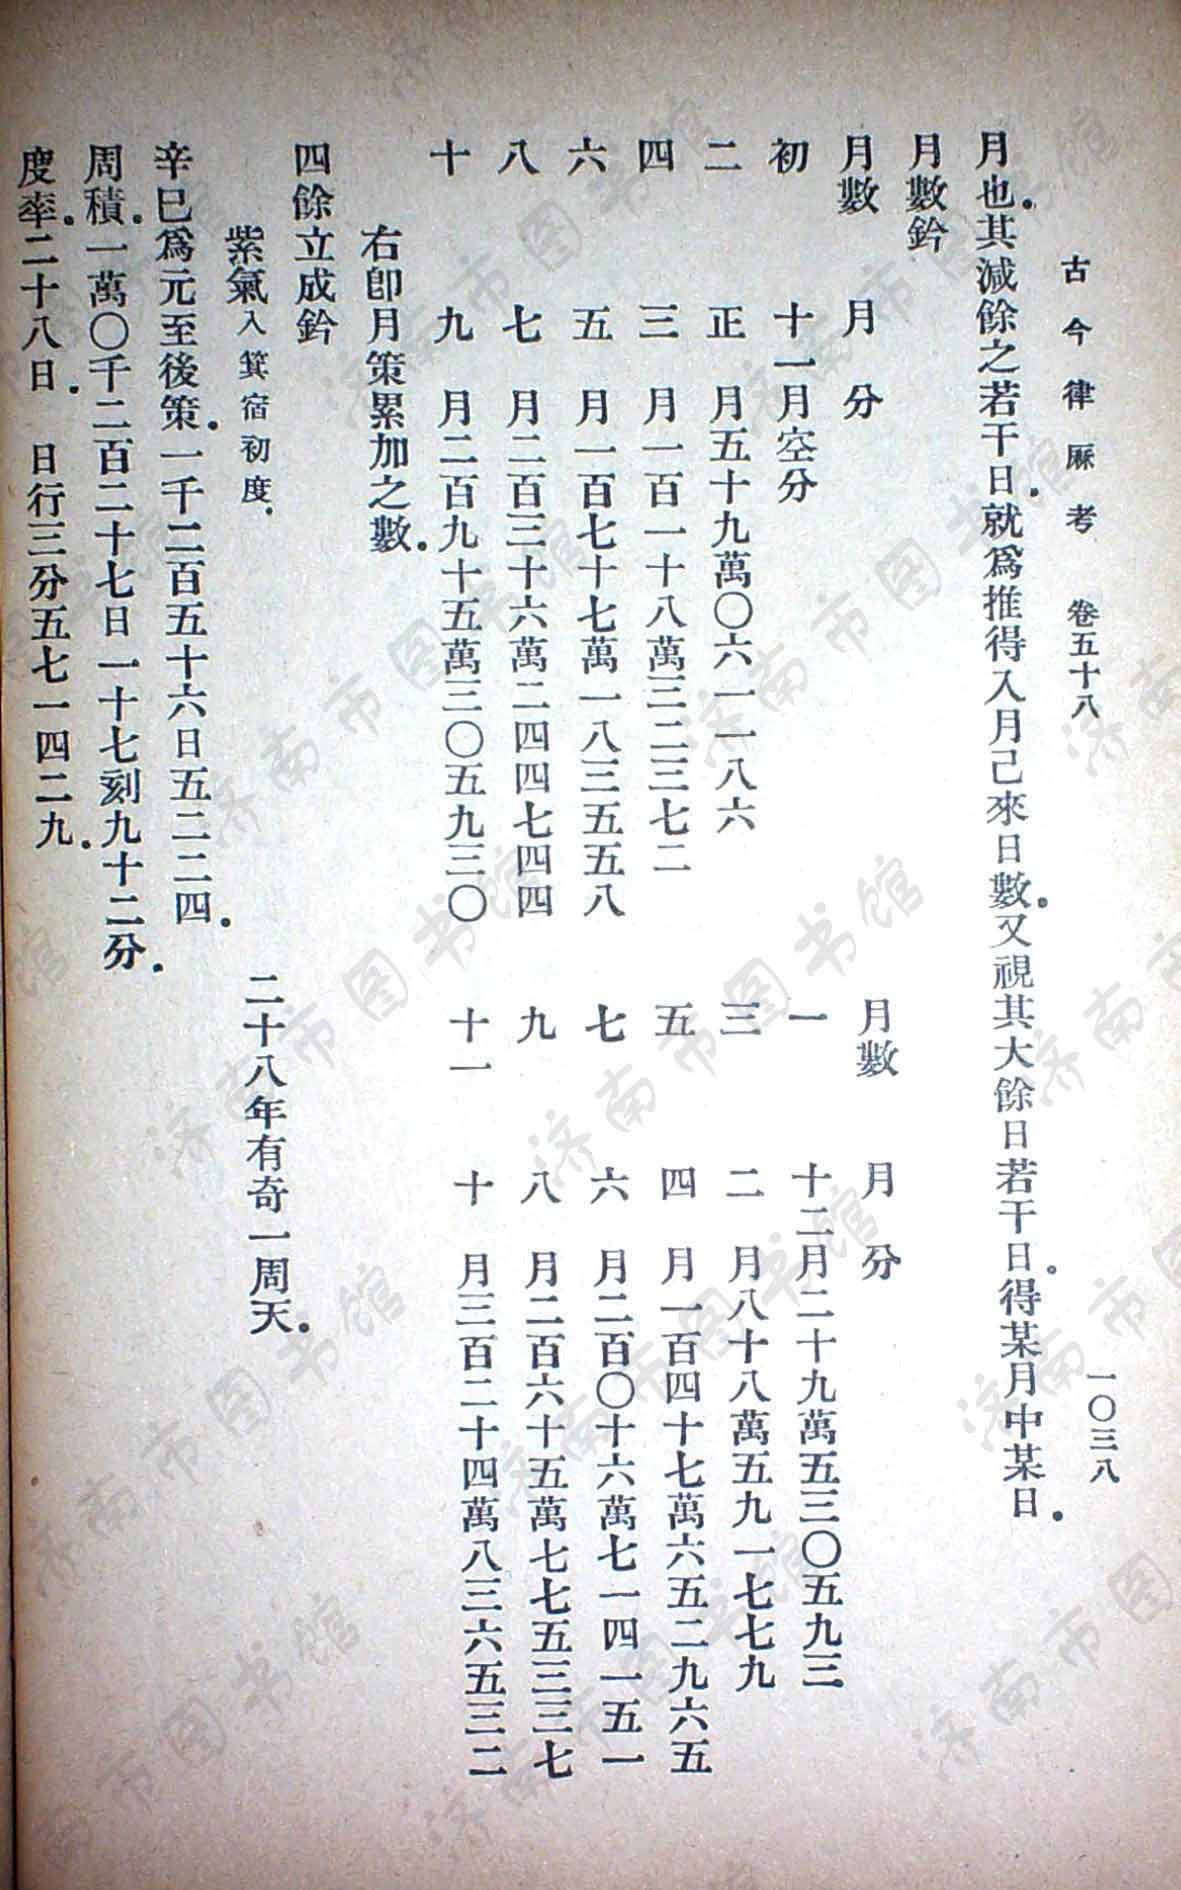 古今律厤考　卷五十八　一〇三八
月也其減餘之若干日就爲推得入月已來日數又視其大餘日若干日得某月中某日
月數鈐
月數　月　分　月數　月　分
初　十一月空分　一　十二月二十九萬五三〇五九三
二　正　月五十九萬〇六一一八六　三　二　月八十八萬五九一七七九
四　三　月一百一十八萬二二三七二　五　四　月一百四十七萬六五二九六五
六　五　月一百七十七萬一八三五五八　七　六　月二百〇十六萬七一四一五一
八　七　月二百三十六萬二四四七四四　九　八　月二百六十五萬七七五三三七
十　九　月二百九十五萬三〇五九三〇　十一　十　月三百二十四萬八三六五三二
右卽月策累加之數
四餘立成鈐
紫氣入箕宿初度　二十八年有奇一周天
辛巳爲元至後策一千二百五十六日五二二四
周積一萬〇千二百二十七日一十七刻九十二分
度率二十八日　日行三分五七一四二九